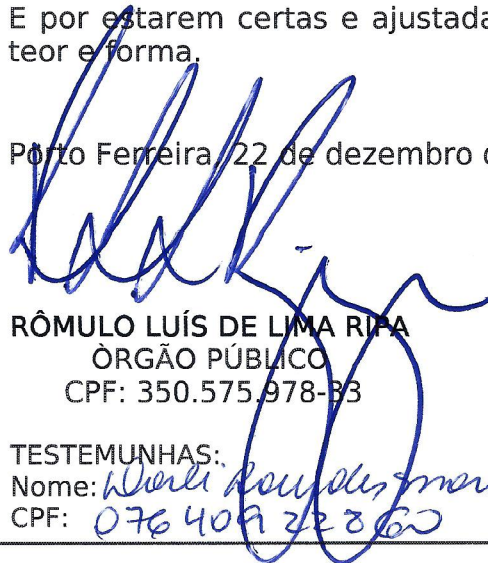 E por estarem certas e ajustada
teor e forma.
Porto Ferreira, 22 de dezembro d
RÔMULO LUÍS DE LIMA RIPA
ÒRGÃO PÚBLICO
CPF: 350.575.978-33
TESTEMUNHAS:
Nome:
CPF: 076 409 228 60